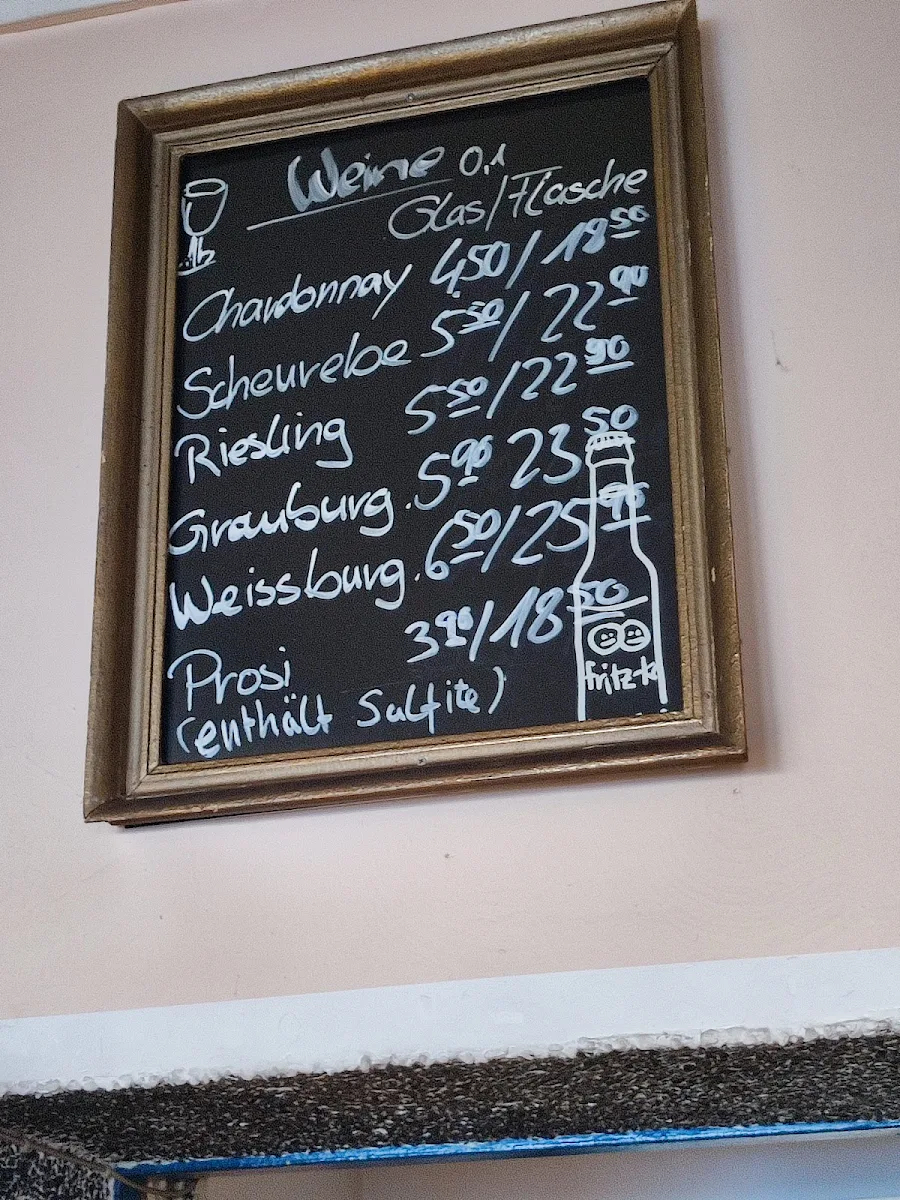 Weine 0,1
Glas/Flasche
Chardonnay 4,50/18 50
Scheurebe 5 50/22 90
Riesling 5 50/22 90
Grauburg. 5 90 23 50
Weissburg. 6 50/25 90
Prosi 3 90/18 50
(enthält Sulfite)
fritz-k